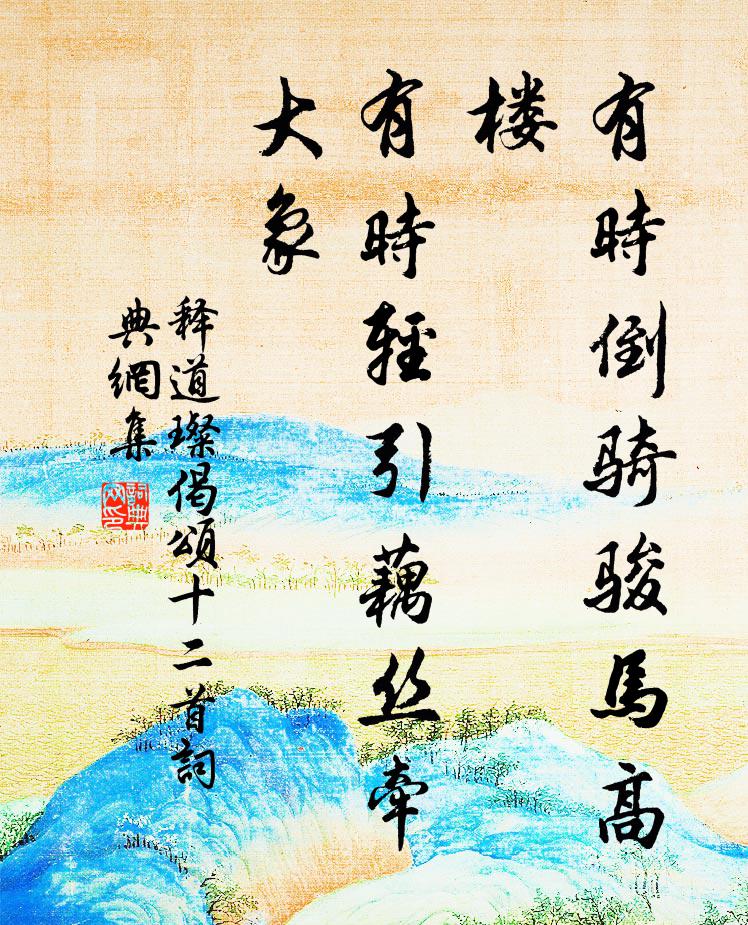 有時倒骑骏馬高
楼
有時輕引藕丝牵
大象
释道璨偈頌十二首詞
典網集
詞典
网印